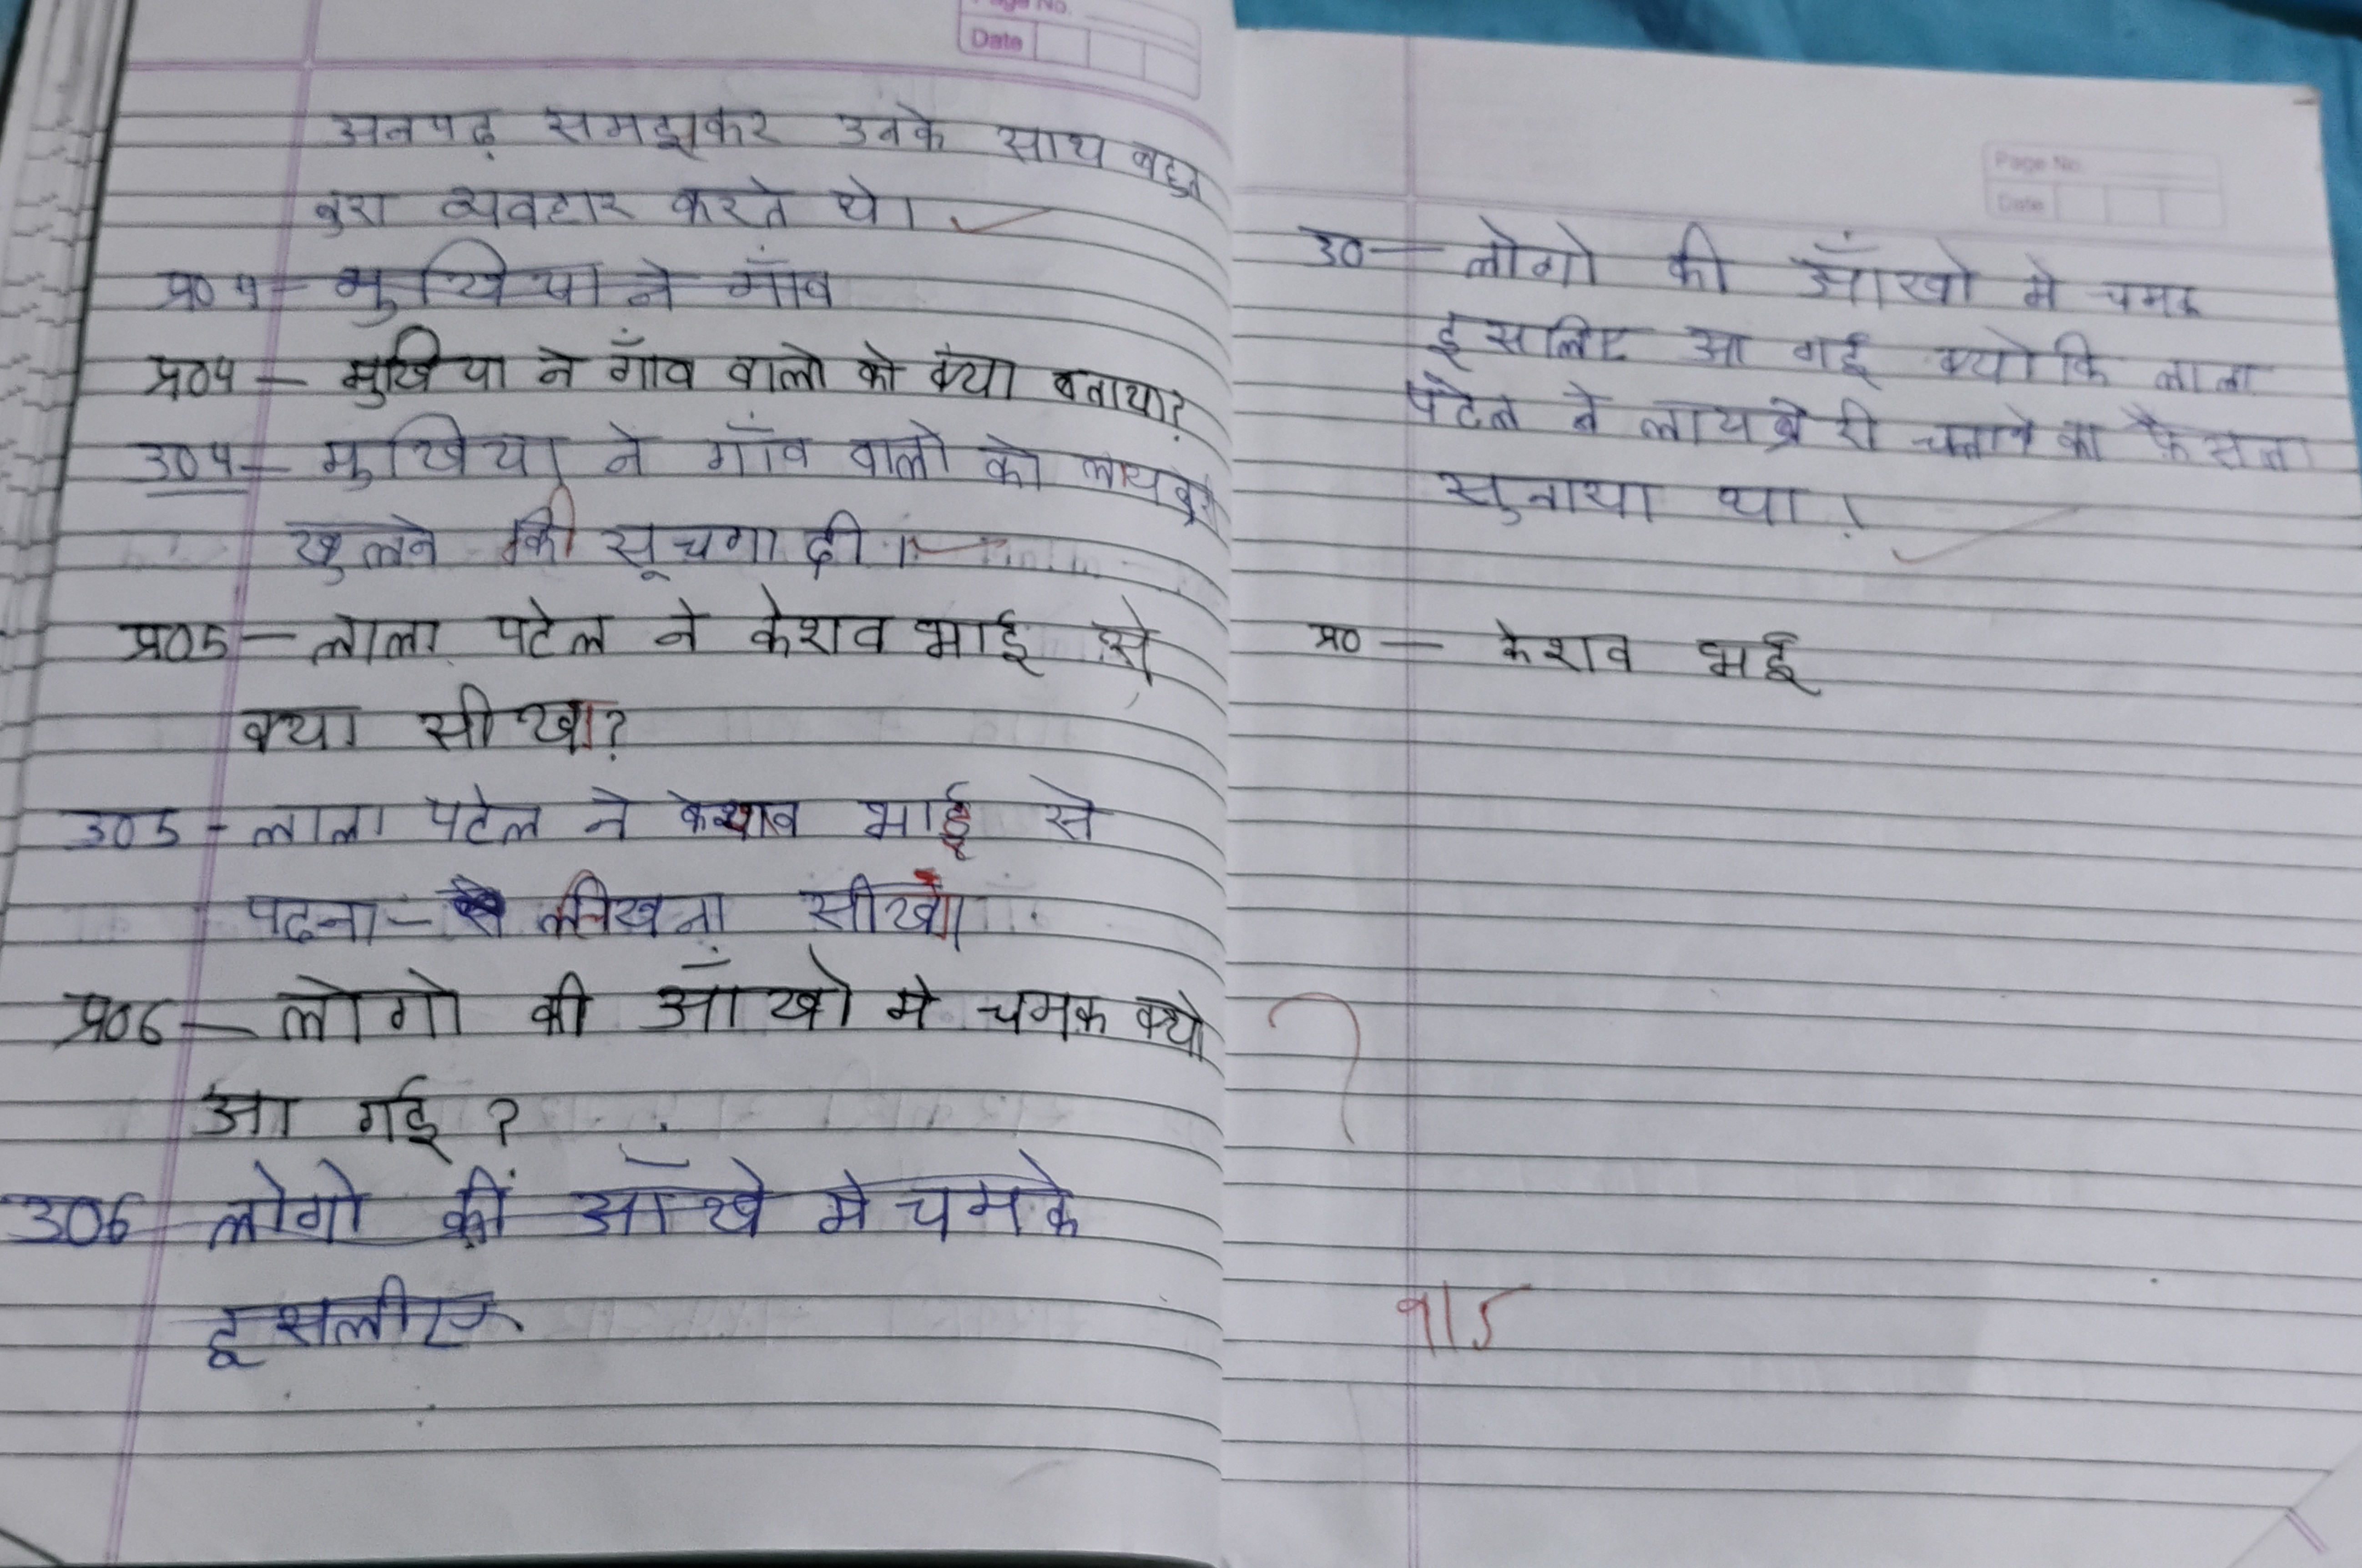 Page No.
Date
अनपढ़ समझकर उनके साथ बहुत
बुरा व्यवहार करते थे।
प्र० 4 - मुखिया ने गाँव
प्र०4 - मुखिया ने गाँव वालो को क्या बताया?
उ०4 - मुखिया ने गाँव वालो को लायब्रे
खुलने की सूचना दी।
प्र०5 - लाला पटेल ने केशव भाई से
क्या सीखा?
उ०5 - लाला पटेल ने केशव भाई से
पढना - लिखना सीखा।
प्र०6 - लोगो की आँखो मे चमक क्यो
आ गई ?
उ०6 लोगो कीं आँखे मे चमके
इसलीए
Page No.
Date
उ० - लोगो की आँखो मे चमक
इसलिए आ गई क्योकि लाला
पटेल ने लायब्रेरी चलाने का फैसला
सुनाया था।
प्र० - केशव भई
?
9/5